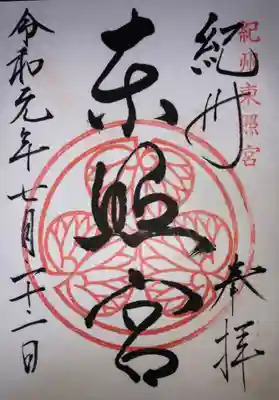 紀州東照宮
紀州
奉拝
東照宮
令和元年七月二十二日